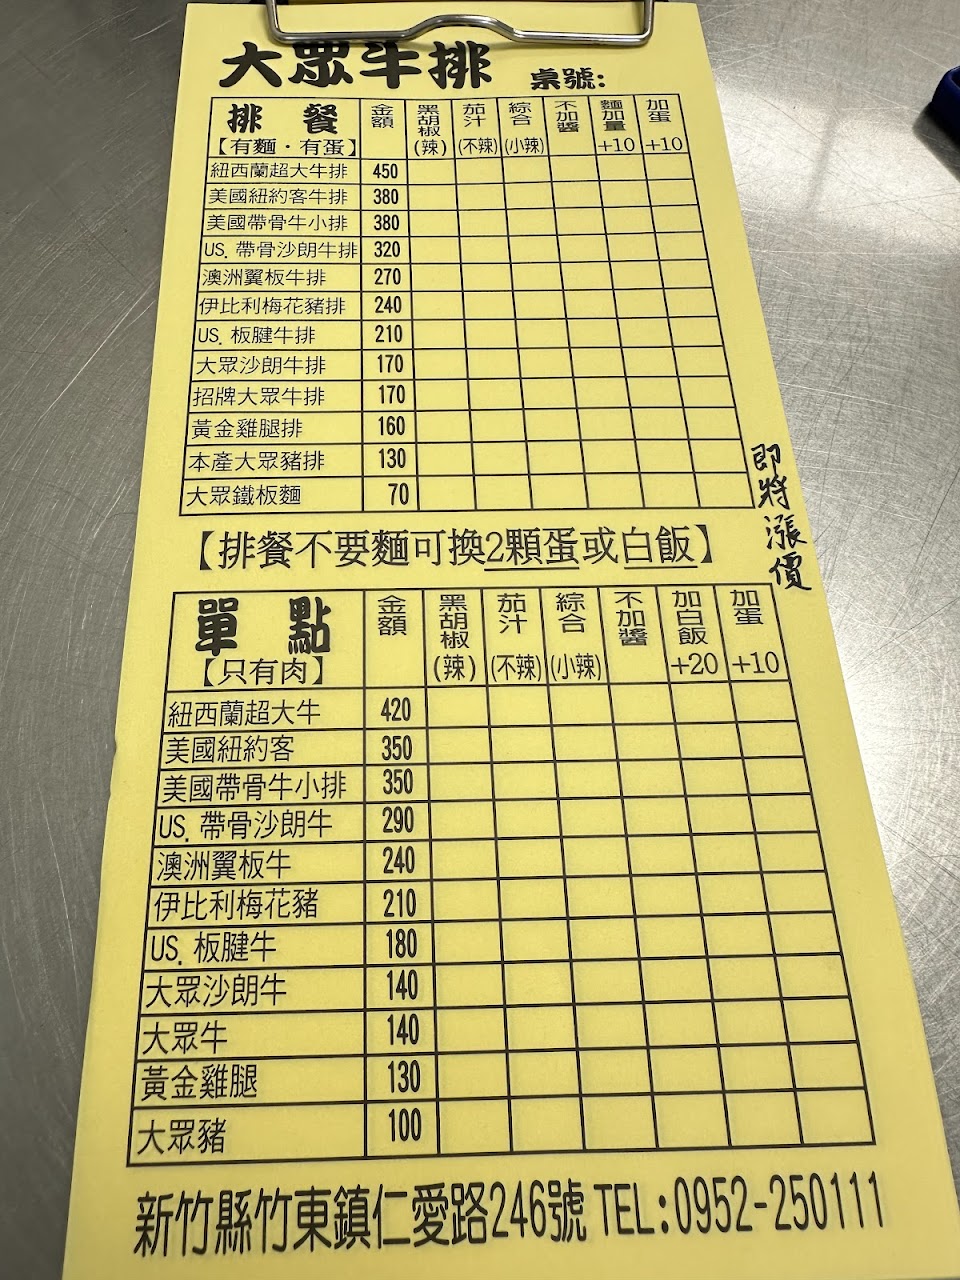 大眾牛排 桌號:
排餐 金額 黑胡椒(辣) 茄汁(不辣) 綜合(小辣) 不加醬 麵加量+10 加蛋+10
【有麵・有蛋】
紐西蘭超大牛排 450
美國紐約客牛排 380
美國帶骨牛小排 380
US. 帶骨沙朗牛排 320
澳洲翼板牛排 270
伊比利梅花豬排 240
US. 板腱牛排 210
大眾沙朗牛排 170
招牌大眾牛排 170
黃金雞腿排 160
本產大眾豬排 130
大眾鐵板麵 70
即將漲價
【排餐不要麵可換2顆蛋或白飯】
單點 金額 黑胡椒(辣) 茄汁(不辣) 綜合(小辣) 不加醬 加白飯+20 加蛋+10
【只有肉】
紐西蘭超大牛 420
美國紐約客 350
美國帶骨牛小排 350
US. 帶骨沙朗牛 290
澳洲翼板牛 240
伊比利梅花豬 210
US. 板腱牛 180
大眾沙朗牛 140
大眾牛 140
黃金雞腿 130
大眾豬 100
新竹縣竹東鎮仁愛路246號 TEL:0952-250111